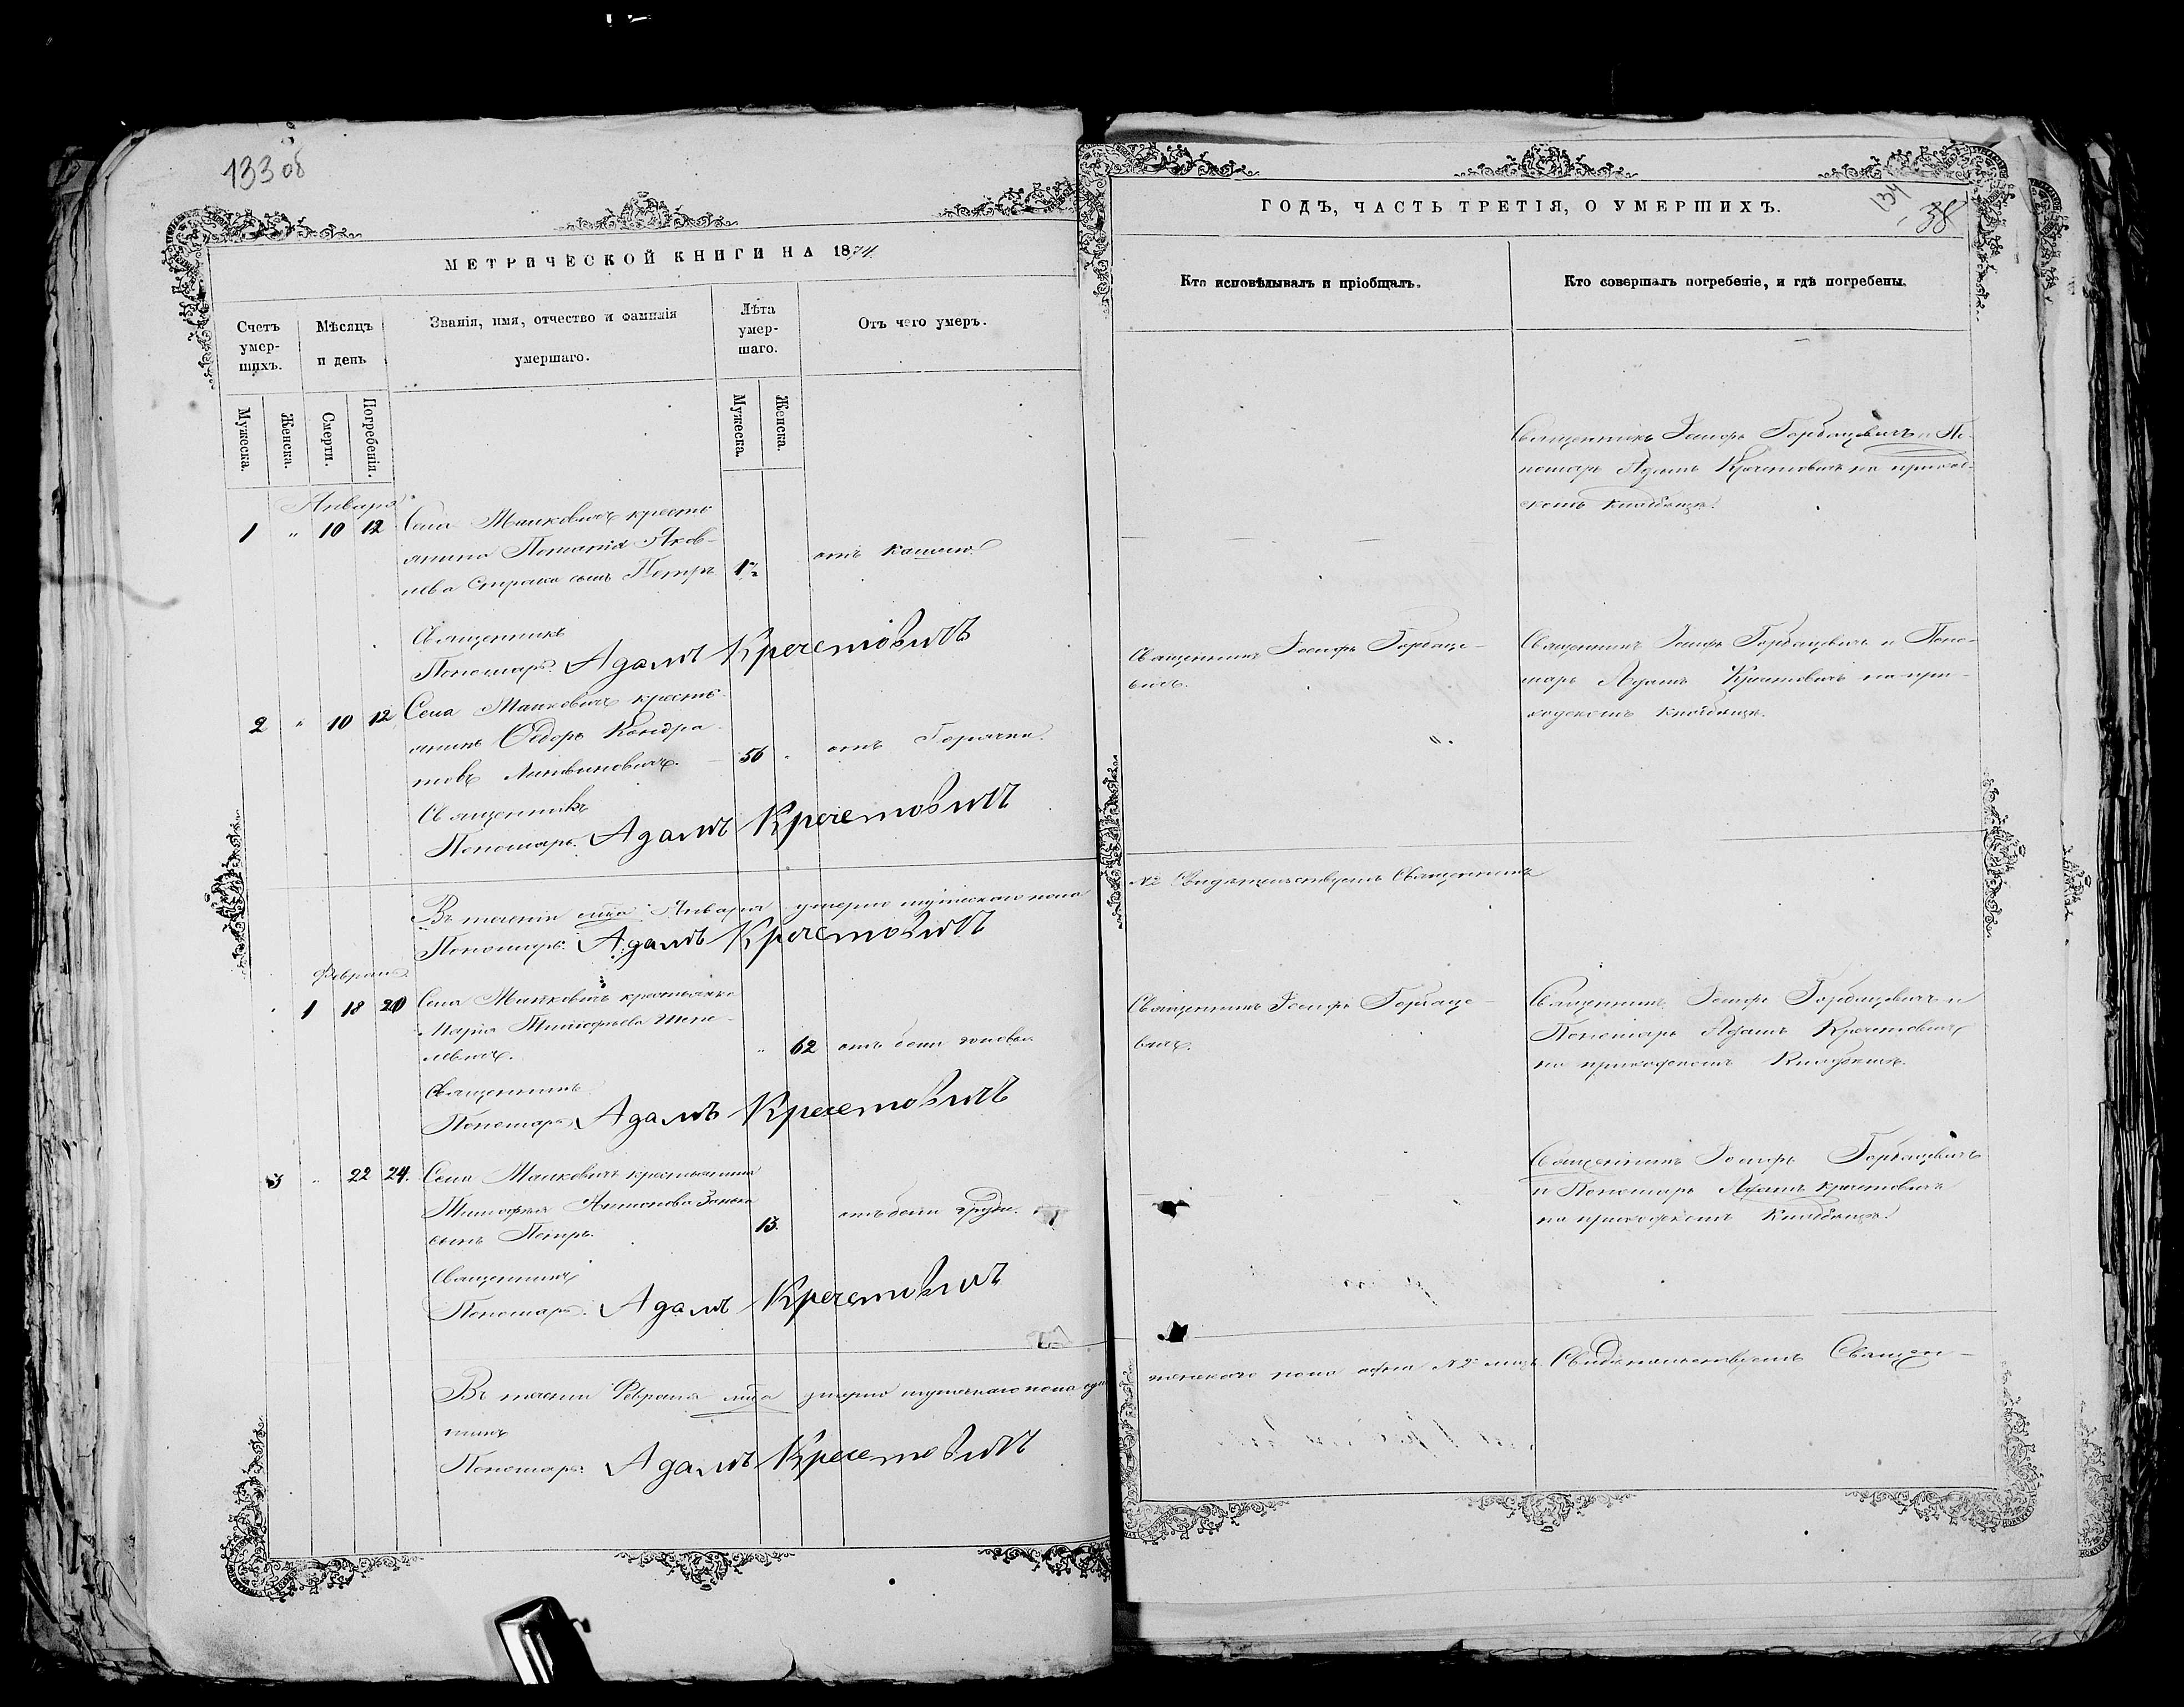 133 об
МЕТРИЧЕСКОЙ КНИГИ НА 1874
Счетъ умер-шихъ.
Мѣсяцъ и день
Званія, имя, отчество и фамилія умершаго.
Лѣта умер-шаго.
Отъ чего умеръ.
Мужеска.
Женска.
Смерти.
Погребенія.
Мужеска.
Женска.
Января
1 " 10 12 Села Малковичъ кресть
янина Яков-
лева сынъ Петръ 1 отъ кашлю
Священникъ
Пономарь Адамъ Кречетовичъ
2 " 10 12 Села Малковичъ кресть-
янинъ Ѳедоръ Кондра-
товъ Литвиновичъ. 56 " отъ Горячки.
Священникъ
Пономарь Адамъ Кречетовичъ
Въ теченіи мца Января умерло мужескаго пола
Пономарь Адамъ Кречетовичъ
Февраля
1 18 20 Села Малковичъ крестьянка
Марія Тимофѣева
62 отъ боли головы
Священникъ
Пономарь Адамъ Кречетовичъ
3 " 22 24. Села Малковичъ крестьянина
Тимофея Антонова
сынъ Петръ. 13. отъ боли груди.
Священникъ
Пономарь Адамъ Кречетовичъ
Въ теченіи Февраля мца умерло мужескаго пола
Пономарь Адамъ Кречетовичъ
ГОДЪ, ЧАСТЬ ТРЕТІЯ, О УМЕРШИХЪ.
134
38
Кто исповѣдывалъ и пріобщалъ.
Кто совершалъ погребеніе, и гдѣ погребены.
Священникъ Іосифъ Горбацевичъ и По-
номарь Адамъ Кречетовичъ на приход-
скомъ кладбищѣ.
Священникъ Іосифъ Горбаце-
вичъ.
Священникъ Іосифъ Горбацевичъ и Поно-
марь Адамъ Кречетовичъ на при-
ходскомъ кладбищѣ.
№ 2 Свидѣтельствуетъ Священникъ
Священникъ Іосифъ Горбаце-
вичъ.
Священникъ Іосифъ Горбацевичъ и
Пономарь Адамъ Кречетовичъ
на приходскомъ Кладбищѣ.
Священникъ Іосифъ Горбацевичъ
и Пономарь Адамъ Кречетовичъ
на приходскомъ Кладбищѣ.
женскаго пола одна № 2 Свидѣтельствуетъ Священ-